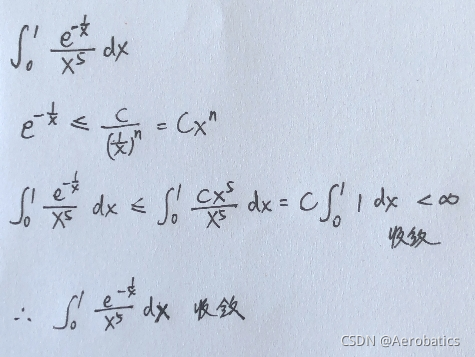 ∫₀¹ e^{-1/x}/x⁵ dx
e^{-1/x} ≤ C/(1/x)ⁿ = Cxⁿ
∫₀¹ e^{-1/x}/x⁵ dx ≤ ∫₀¹ Cx⁵/x⁵ dx = C∫₀¹ 1 dx < ∞
收敛
∴ ∫₀¹ e^{-1/x}/x⁵ dx 收敛
CSDN @Aerobatics